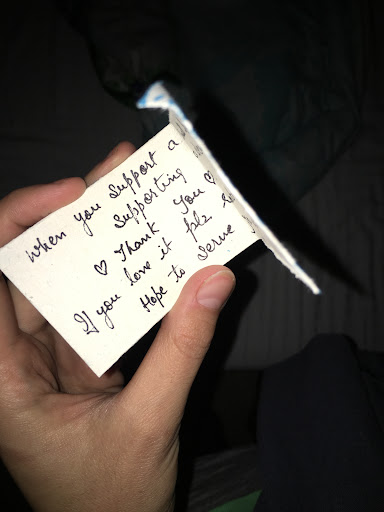 When you support a
Supporting
♡ Thank You ♡
If you love it plz
Hope to serve